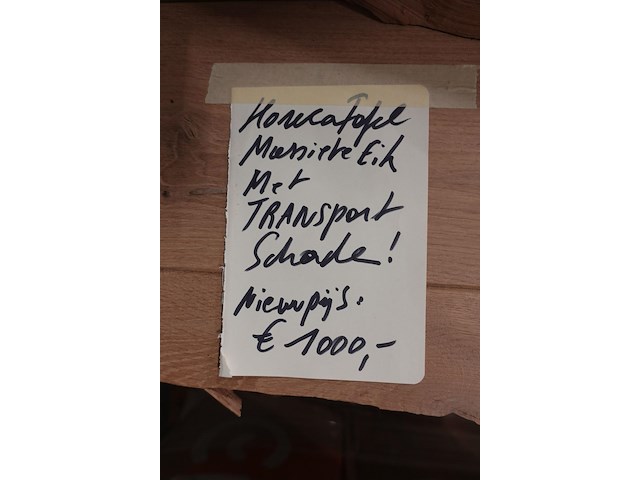 HorecaTafel
Massieve Eik
Met
TRANSport
Schade!
Nieuwprijs.
€ 1000,-